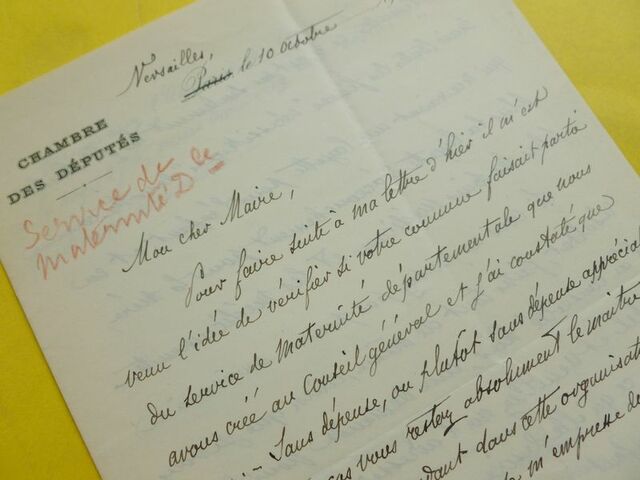 Versailles,
Paris le 10 octobre
CHAMBRE
DES DÉPUTÉS
Service de la
maternité Dle
Mon cher Maire,
Pour faire suite à ma lettre d'hier il m'est
venu l'idée de vérifier si votre commune faisait partie
du service de Maternité départementale que nous
avons créé au Conseil général et j'ai constaté que
.- Sans dépense, ou plutôt sans dépense appréciab
cas vous restez absolument le maître
dant dans cette organisat
je m'empresse de